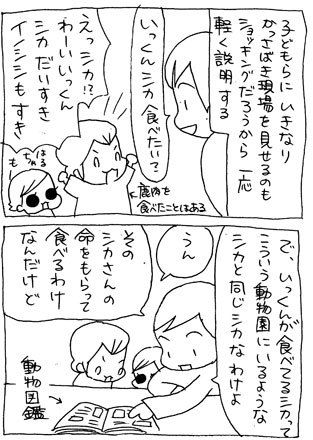 子どもらに いきなり
かっさばき現場を見せるのも
ショッキングだろうから 一応
軽く説明する
いっくんシカ食べたい?
えっシカ!?
わーいいっくん
シカだいすき
イノシシもすき
はる
ちゃん
も
←鹿肉を
食べたことはある
で、いっくんが食べてるシカって
こういう動物園にいるような
シカと同じシカなわけよ
うん
その
シカさんの
命をもらって
食べるわけ
なんだけど
動物図鑑